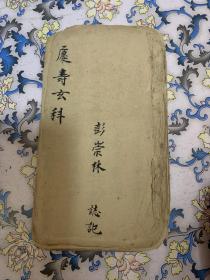 慶壽玄科
彭崇林 誌記